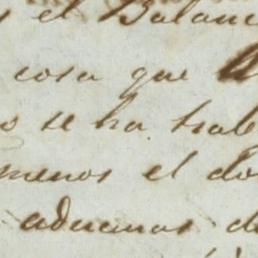 el Balanc
cosa que
o se ha trab
menos el do
aduanas de